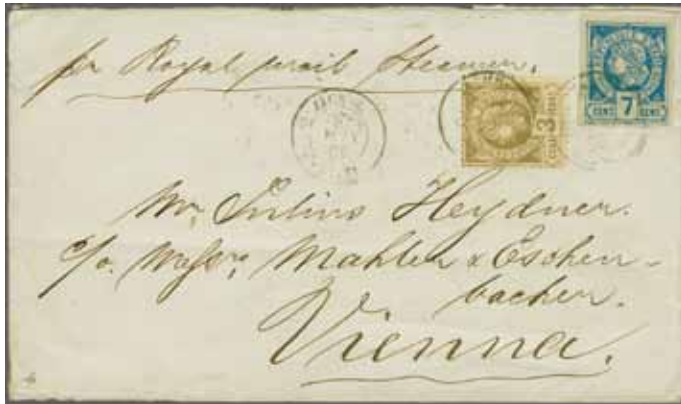 pr Royal mail Steamer.
CENT 7 CENT
3
Mr. Julius Heydner.
c/o. Messrs. Mahler & Eschen-
bacher.
Vienna.